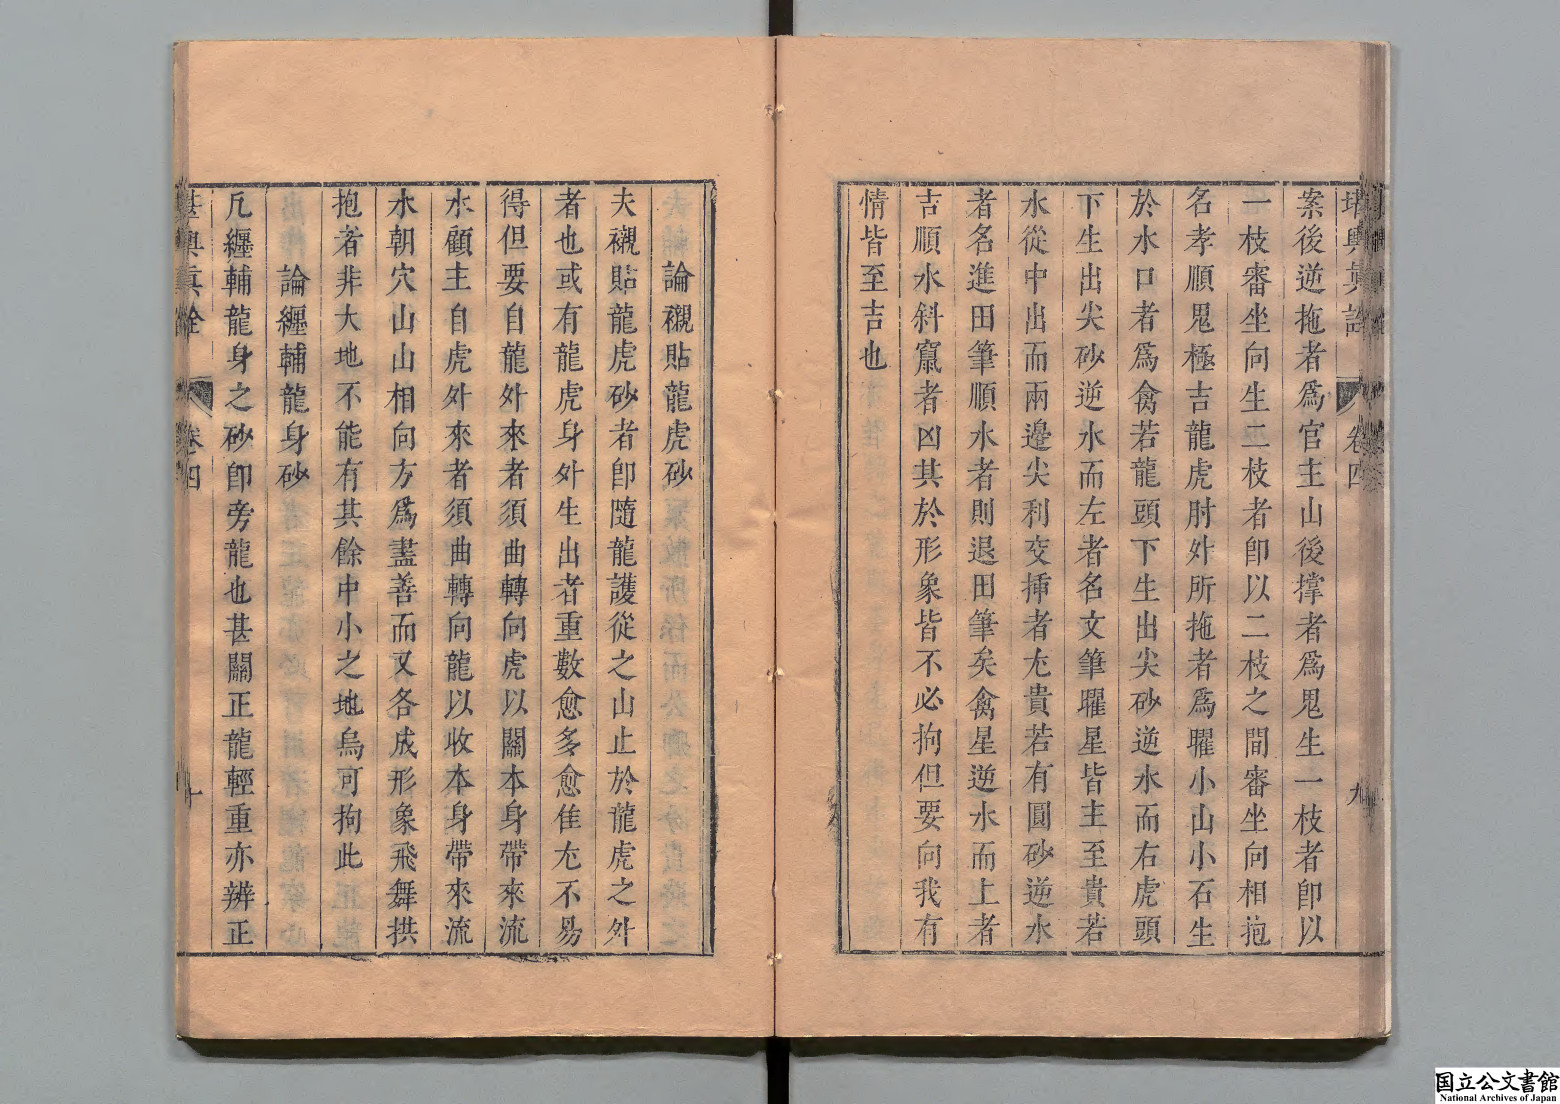 堪輿眞詮 卷四 九
案後逆拖者爲官主山後撐者爲鬼生一枝者卽以
一枝審坐向生二枝者卽以二枝之間審坐向相抱
名孝順鬼極吉龍虎肘外所拖者爲曜小山小石生
於水口者爲禽若龍頭下生出尖砂逆水而右虎頭
下生出尖砂逆水而左者名文筆曜星皆主至貴若
水從中出而兩邊尖利交揷者尤貴若有圓砂逆水
者名進田筆順水者則退田筆矣禽星逆水而上者
吉順水斜竄者凶其於形象皆不必拘但要向我有
情皆至吉也
論襯貼龍虎砂
夫襯貼龍虎砂者卽隨龍護從之山止於龍虎之外
者也或有龍虎身外生出者重數愈多愈隹尤不易
得但要自龍外來者須曲轉向虎以關本身帶來流
水顧主自虎外來者須曲轉向龍以收本身帶來流
水朝穴山山相向方爲盡善而又各成形象飛舞拱
抱者非大地不能有其餘中小之地烏可拘此
論纒輔龍身砂
凡纒輔龍身之砂卽旁龍也甚關正龍輕重亦辨正
堪輿眞詮 卷四 十
国立公文書館
National Archives of Japan